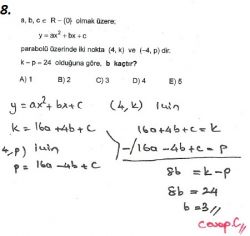 8.
a, b, c ∈ R - {0} olmak üzere;
y = ax² + bx + c
parabolü üzerinde iki nokta (4, k) ve (-4, p) dir.
k - p = 24 olduğuna göre, b kaçtır?
A) 1 B) 2 C) 3 D) 4 E) 5
y = ax² + bx + c (4, k) için
k = 16a + 4b + c 16a + 4b + c = k
4, p) için -/16a - 4b + c = p
p = 16a - 4b + c 8b = k - p
8b = 24
b = 3//
cevap C//